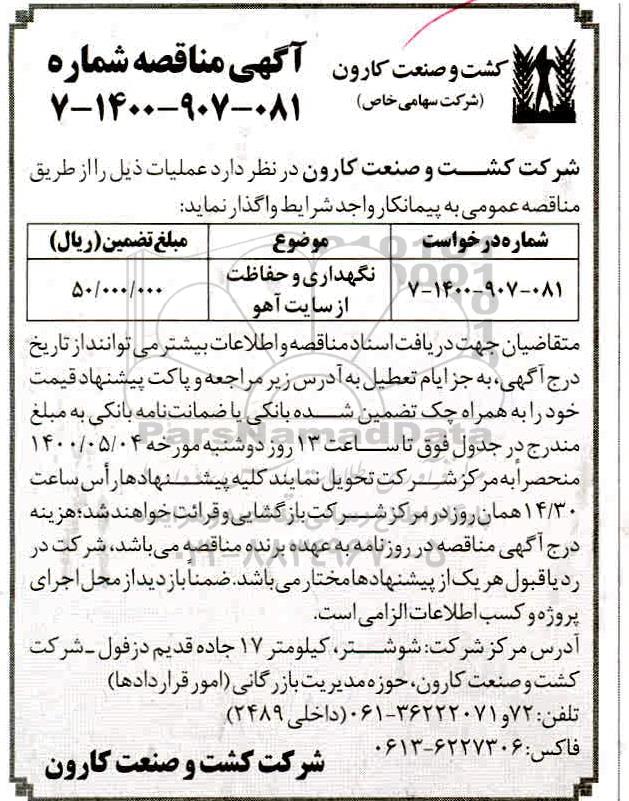 کشت و صنعت کارون
(شرکت سهامی خاص)
آگهی مناقصه شماره
۷-۱۴۰۰-۹۰۷-۰۸۱
شرکت کشت و صنعت کارون در نظر دارد عملیات ذیل را از طریق
مناقصه عمومی به پیمانکار واجد شرایط واگذار نماید:
شماره درخواست موضوع مبلغ تضمین (ریال)
۷-۱۴۰۰-۹۰۷-۰۸۱ نگهداری و حفاظت از سایت آهو ۵۰/۰۰۰/۰۰۰
متقاضیان جهت دریافت اسناد مناقصه و اطلاعات بیشتر می توانند از تاریخ
درج آگهی، به جز ایام تعطیل به آدرس زیر مراجعه و پاکت پیشنهاد قیمت
خود را به همراه چک تضمین شده بانکی یا ضمانت‌نامه بانکی به مبلغ
مندرج در جدول فوق تا ساعت ۱۳ روز دوشنبه مورخه ۱۴۰۰/۰۵/۰۴
منحصراً به مرکز شرکت تحویل نمایند کلیه پیشنهادها رأس ساعت
۱۴/۳۰ همان روز در مرکز شرکت بازگشایی و قرائت خواهند شد؛ هزینه
درج آگهی مناقصه در روزنامه به عهده برنده مناقصه می‌باشد، شرکت در
رد یا قبول هر یک از پیشنهادها مختار می باشد. ضمناً بازدید از محل اجرای
پروژه و کسب اطلاعات الزامی است.
آدرس مرکز شرکت: شوشتر، کیلومتر ۱۷ جاده قدیم دزفول ـ شرکت
کشت و صنعت کارون، حوزه مدیریت بازرگانی (امور قراردادها)
تلفن: ۷۲ و ۳۶۲۲۲۰۷۱-۰۶۱ (داخلی ۲۴۸۹)
فاکس: ۶۲۲۷۳۰۶-۰۶۱۳
شرکت کشت و صنعت کارون
ParsNamadData